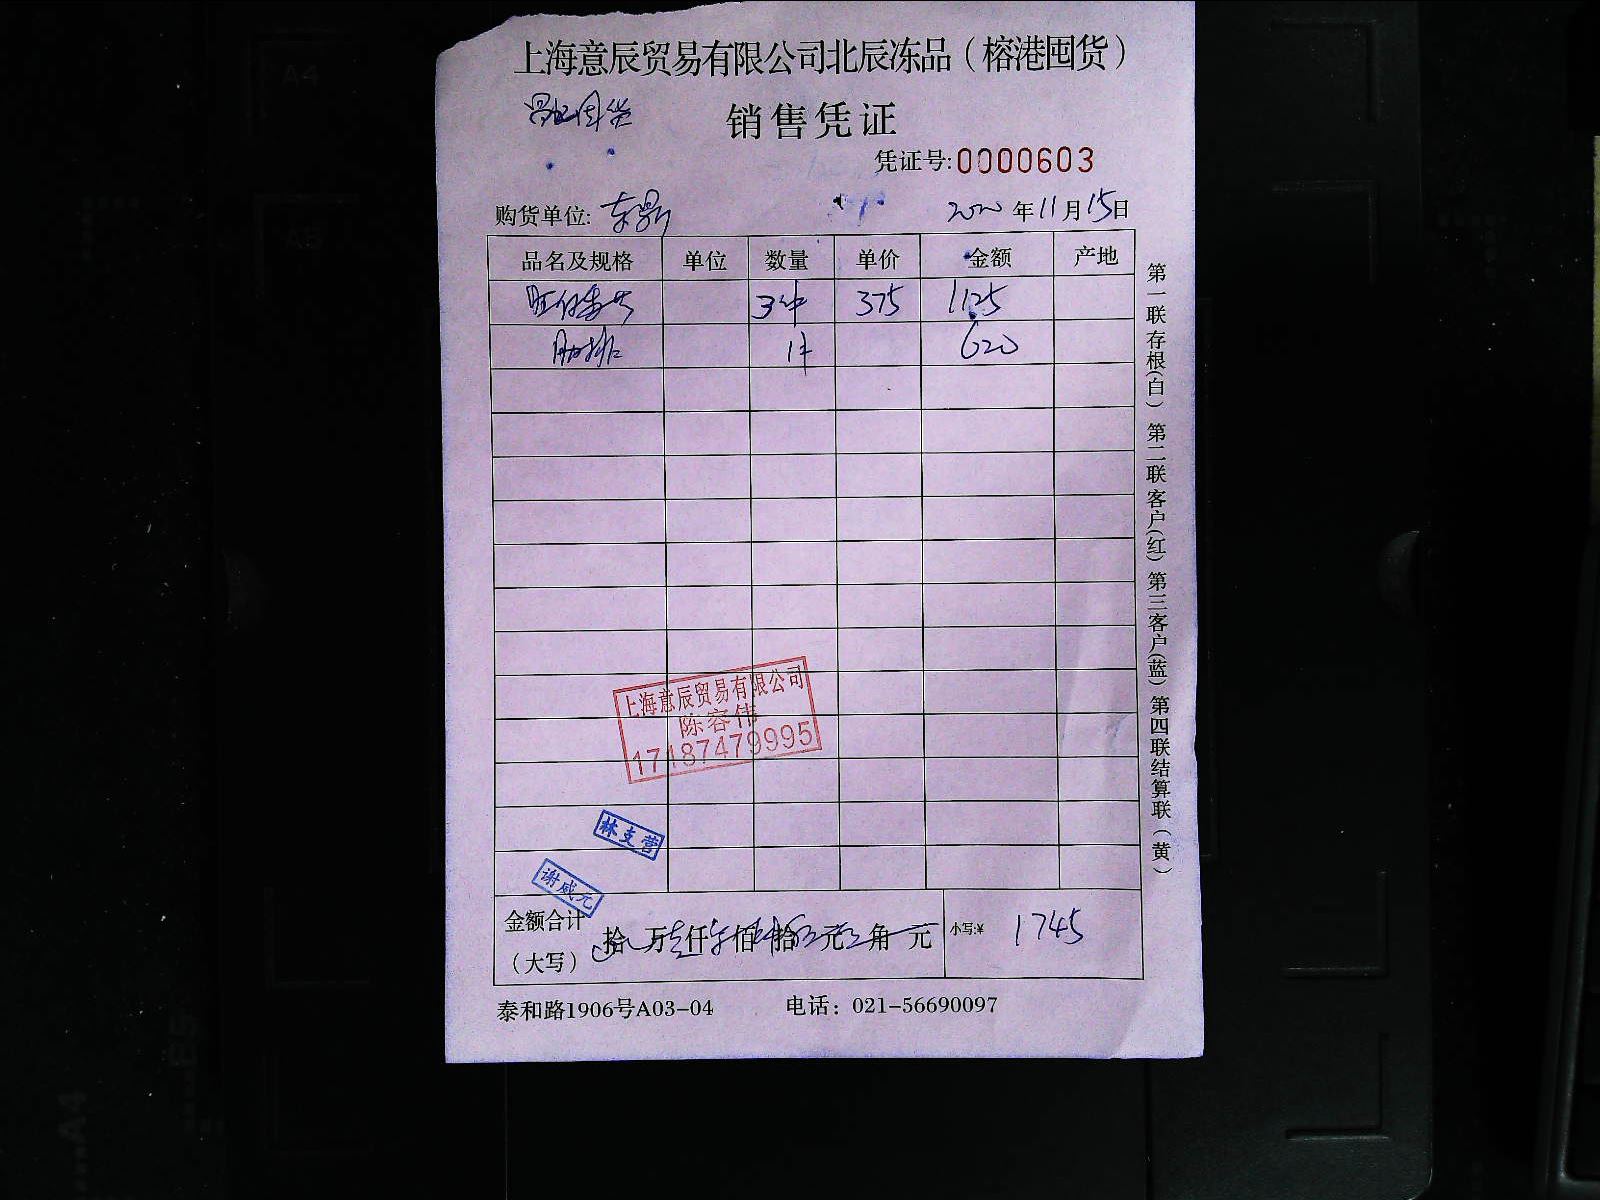 上海意辰贸易有限公司北辰冻品（榕港囤货）
销售凭证
凭证号:0000603
购货单位: 东鼎 2020年11月15日
品名及规格 单位 数量 单价 金额 产地
3件 375 1125
肋排 1件 620
上海意辰贸易有限公司
陈容伟
17187479995
林支营
谢威元
金额合计（大写） 拾 万 仟 佰 拾 元 角 元 小写:¥ 1745
泰和路1906号A03-04 电话：021-56690097
第一联存根（白）第二联客户（红）第三客户（蓝）第四联结算联（黄）
A4
A5